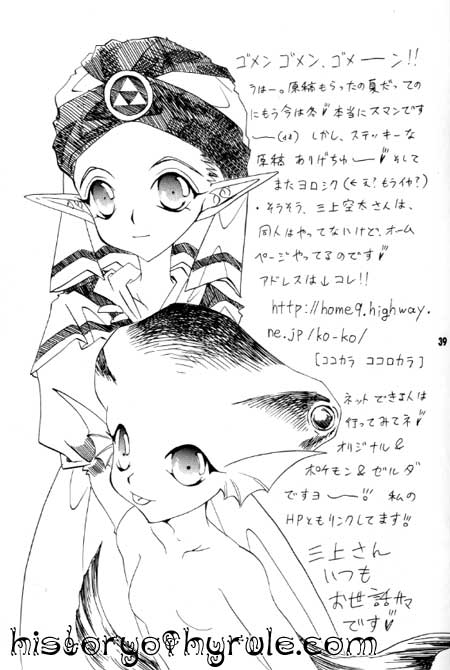 ゴメン ゴメン、ゴメーーン!!
うはー。原稿もらったの夏だっての
にもう今は冬 本当にスマンです
しかし、ステッキーな
原稿 ありげちゅー そして
またヨロシク(←え?もうイヤ?)
・そうそう、三上空太さんは、
同人はやってないけど、ホーム
ページやってるのです
アドレスは↓コレ!!
http://home9.highway.
ne.jp/ko-ko/
[ココカラ ココロカラ]
39
ネットできる人は
行ってみてネ
オリジナル&
ポケモン&ゼルダ
ですヨー!! 私の
HPともリンクしてます!!
三上さん
いつも
お世話サマ
です
historyofhyrule.com